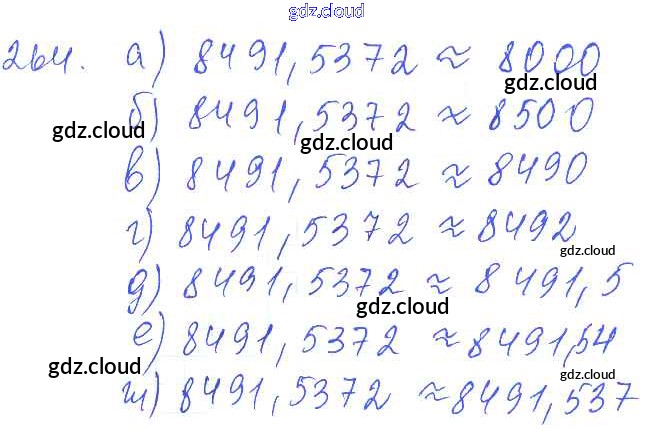 gdz.cloud
264. а) 8491,5372 ≈ 8000
gdz.cloud
б) 8491,5372 ≈ 8500
gdz.cloud
gdz.cloud
в) 8491,5372 ≈ 8490
г) 8491,5372 ≈ 8492
gdz.cloud
д) 8491,5372 ≈ 8491,5
gdz.cloud
е) 8491,5372 ≈ 8491,54
gdz.cloud
gdz.cloud
ж) 8491,5372 ≈ 8491,537